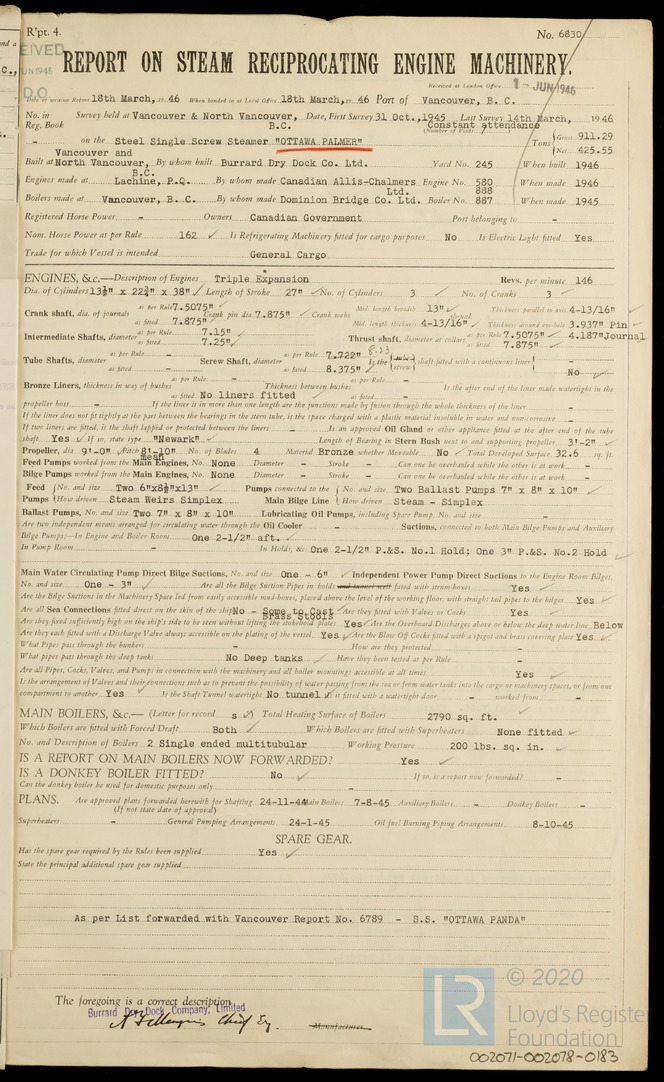 R'pt. 4.
No. 6830
REPORT ON STEAM RECIPROCATING ENGINE MACHINERY.
Received at London Office 1 - JUN 1946
Date of writing Report 18th March, 1946 When handed in at Local Office 18th March, 1946 Port of Vancouver, B. C.
No. in Reg. Book Survey held at Vancouver & North Vancouver, B.C. Date, First Survey 31 Oct., 1945 Last Survey 14th March, 1946
Constant attendance
(Number of Visits )
- on the Steel Single Screw Steamer "OTTAWA PALMER" Tons Gross 911.29 Net 425.55
Built at Vancouver and North Vancouver, B.C. By whom built Burrard Dry Dock Co. Ltd. Yard No. 245 When built 1946
Engines made at Lachine, P.Q. By whom made Canadian Allis-Chalmers Ltd. Engine No. 580 888 When made 1946
Boilers made at Vancouver, B. C. By whom made Dominion Bridge Co. Ltd. Boiler No. 887 When made 1945
Registered Horse Power - Owners Canadian Government Port belonging to -
Nom. Horse Power as per Rule 162 ✓ Is Refrigerating Machinery fitted for cargo purposes No Is Electric Light fitted Yes
Trade for which Vessel is intended General Cargo
ENGINES, &c.—Description of Engines Triple Expansion Revs. per minute 146
Dia. of Cylinders 13½" x 22¾" x 38" ✓ Length of Stroke 27" ✓ No. of Cylinders 3 ✓ No. of Cranks 3 ✓
Crank shaft, dia. of journals as per Rule 7.5075" as fitted 7.875" Crank pin dia. 7.875" ✓ Crank webs Mid. length breadth 13" ✓ Mid. length thickness 4-13/16" ✓ shrunk Thickness parallel to axis 4-13/16" Thickness around eye-hole 3.937" Pin 4.187" Journal
Intermediate Shafts, diameter as per Rule 7.15" as fitted 7.25" Thrust shaft, diameter at collars as per Rule 7.5075" as fitted 7.875"
Tube Shafts, diameter as per Rule - as fitted - Screw Shaft, diameter as per Rule 7.722" 8.23 as fitted 8.375" Is the screw shaft fitted with a continuous liner - No
Bronze Liners, thickness in way of bushes as per Rule - as fitted No liners fitted Thickness between bushes as per Rule - as fitted Is the after end of the liner made watertight in the
propeller boss - If the liner is in more than one length are the junctions made by fusion through the whole thickness of the liner -
If the liner does not fit tightly at the part between the bearings in the stern tube, is the space charged with a plastic material insoluble in water and non-corrosive -
If two liners are fitted, is the shaft lapped or protected between the liners - Is an approved Oil Gland or other appliance fitted at the after end of the tube
shaft Yes ✓ If so, state type "Newark" ✓ Length of Bearing in Stern Bush next to and supporting propeller 3'-2" ✓
Propeller, dia 9'-0" Pitch 8'-10" mean No. of Blades 4 Material Bronze whether Moveable No ✓ Total Developed Surface 32.6 sq. ft.
Feed Pumps worked from the Main Engines, No. None Diameter - Stroke - Can one be overhauled while the other is at work -
Bilge Pumps worked from the Main Engines, No. None Diameter - Stroke - Can one be overhauled while the other is at work -
Feed Pumps No. and size Two 6"x8½"x13" ✓ How driven Steam Weirs Simplex
Pumps connected to the Main Bilge Line No. and size Two Ballast Pumps 7" x 8" x 10" ✓ How driven Steam - Simplex
Ballast Pumps, No. and size Two 7" x 8" x 10" Lubricating Oil Pumps, including Spare Pump, No. and size -
Are two independent means arranged for circulating water through the Oil Cooler - Suctions, connected to both Main Bilge Pumps and Auxiliary
Bilge Pumps;—In Engine and Boiler Room One 2-1/2" aft. ✓
In Pump Room - In Holds, & One 2-1/2" P.&S. No.1 Hold; One 3" P.&S. No.2 Hold ✓
Main Water Circulating Pump Direct Bilge Suctions, No. and size One - 6" ✓ Independent Power Pump Direct Suctions to the Engine Room Bilges,
No. and size One - 3" ✓ Are all the Bilge Suction Pipes in holds and tunnel well fitted with strum-boxes Yes ✓
Are the Bilge Suctions in the Machinery Space led from easily accessible mud-boxes, placed above the level of the working floor, with straight tail pipes to the bilges Yes ✓
Are all Sea Connections fitted direct on the skin of the ship No - Some to Cast Brass Stools Are they fitted with Valves or Cocks Yes ✓
Are they fixed sufficiently high on the ship's side to be seen without lifting the stokehold plates Yes ✓ Are the Overboard Discharges above or below the deep water line Below
Are they each fitted with a Discharge Valve always accessible on the plating of the vessel Yes ✓ Are the Blow Off Cocks fitted with a spigot and brass covering plate Yes ✓
What Pipes pass through the bunkers - How are they protected -
What pipes pass through the deep tanks No Deep tanks ✓ Have they been tested as per Rule -
Are all Pipes, Cocks, Valves, and Pumps in connection with the machinery and all boiler mountings accessible at all times Yes ✓
Is the arrangement of Valves and their connections such as to prevent the possibility of water passing from the sea or from water tanks into the cargo or machinery spaces, or from one
compartment to another Yes ✓ Is the Shaft Tunnel watertight No tunnel ✓ Is it fitted with a watertight door - worked from -
MAIN BOILERS, &c.—(Letter for record s ✓) Total Heating Surface of Boilers 2790 sq. ft.
Which Boilers are fitted with Forced Draft Both ✓ Which Boilers are fitted with Superheaters None fitted ✓
No. and Description of Boilers 2 Single ended multitubular Working Pressure 200 lbs. sq. in. ✓
IS A REPORT ON MAIN BOILERS NOW FORWARDED? Yes ✓
IS A DONKEY BOILER FITTED? No ✓ If so, is a report now forwarded? -
Can the donkey boiler be used for domestic purposes only -
PLANS. Are approved plans forwarded herewith for Shafting 24-11-44 Main Boilers 7-8-45 Auxiliary Boilers - Donkey Boilers -
(If not state date of approval)
Superheaters - General Pumping Arrangements 24-1-45 Oil fuel Burning Piping Arrangements 8-10-45
SPARE GEAR.
Has the spare gear required by the Rules been supplied Yes ✓
State the principal additional spare gear supplied
As per List forwarded with Vancouver Report No. 6789 - S.S. "OTTAWA PANDA"
The foregoing is a correct description,
Burrard Dry Dock Company, Limited
Chief Eng.
Manufacturer.
LR © 2020
Lloyd's Register
Foundation
002071-002078-0183